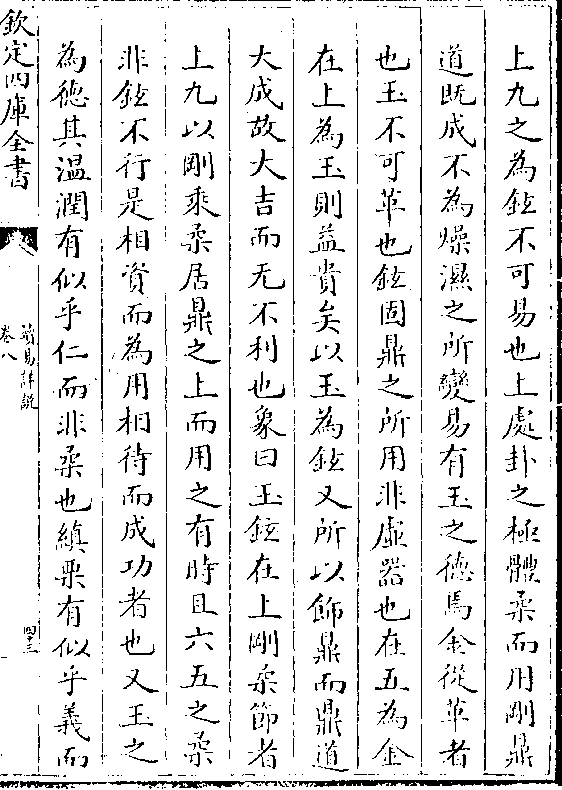 上九之為鉉不可易也上處卦之極體柔而用剛鼎
道既成不為燥濕之所變易有玉之德焉金從革者
也玉不可革也鉉固鼎之所用非虛器也在五為金
在上為玉則益貴矣以玉為鉉又所以飾鼎而鼎道
大成故大吉而无不利也象曰玉鉉在上剛柔節者
上九以剛乘柔居鼎之上而用之有時且六五之柔
非鉉不行是相資而為用相待而成功者也又玉之
為德其溫潤有似乎仁而非柔也縝栗有似乎義而
欽定四庫全書
讀易詳說
卷八
四十三